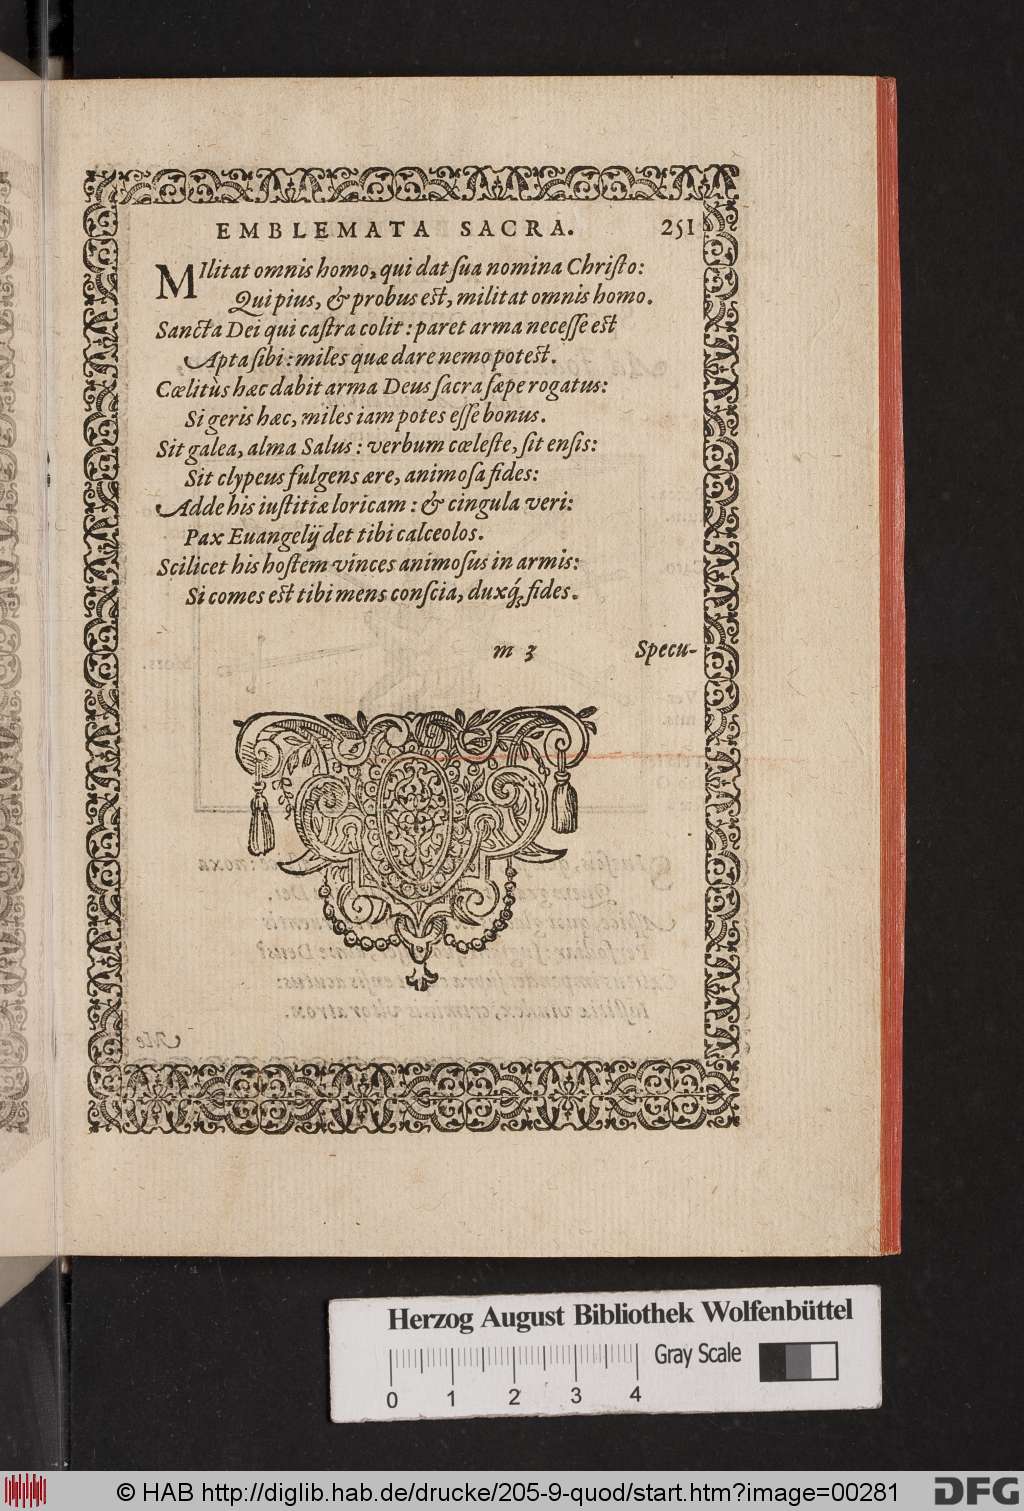 EMBLEMATA SACRA. 251
MIlitat omnis homo, qui dat ſua nomina Chriſto:
Qui pius, & probus est, militat omnis homo.
Sancta Dei qui caſtra colit: paret arma neceſſe est
Apta ſibi: miles quæ dare nemo potest.
Cœlitùs hæc dabit arma Deus ſacra ſæpe rogatus:
Si geris hæc, miles iam potes eſſe bonus.
Sit galea, alma Salus: verbum cœleſte, ſit enſis:
Sit clypeus fulgens ære, animoſa fides:
Adde his iuſtitiæ loricam: & cingula veri:
Pax Euangelij det tibi calceolos.
Scilicet his hoſtem vinces animoſus in armis:
Si comes est tibi mens conſcia, duxq́; fides.
m 3 Specu-
Herzog August Bibliothek Wolfenbüttel
Gray Scale
0 1 2 3 4
© HAB http://diglib.hab.de/drucke/205-9-quod/start.htm?image=00281
DFG